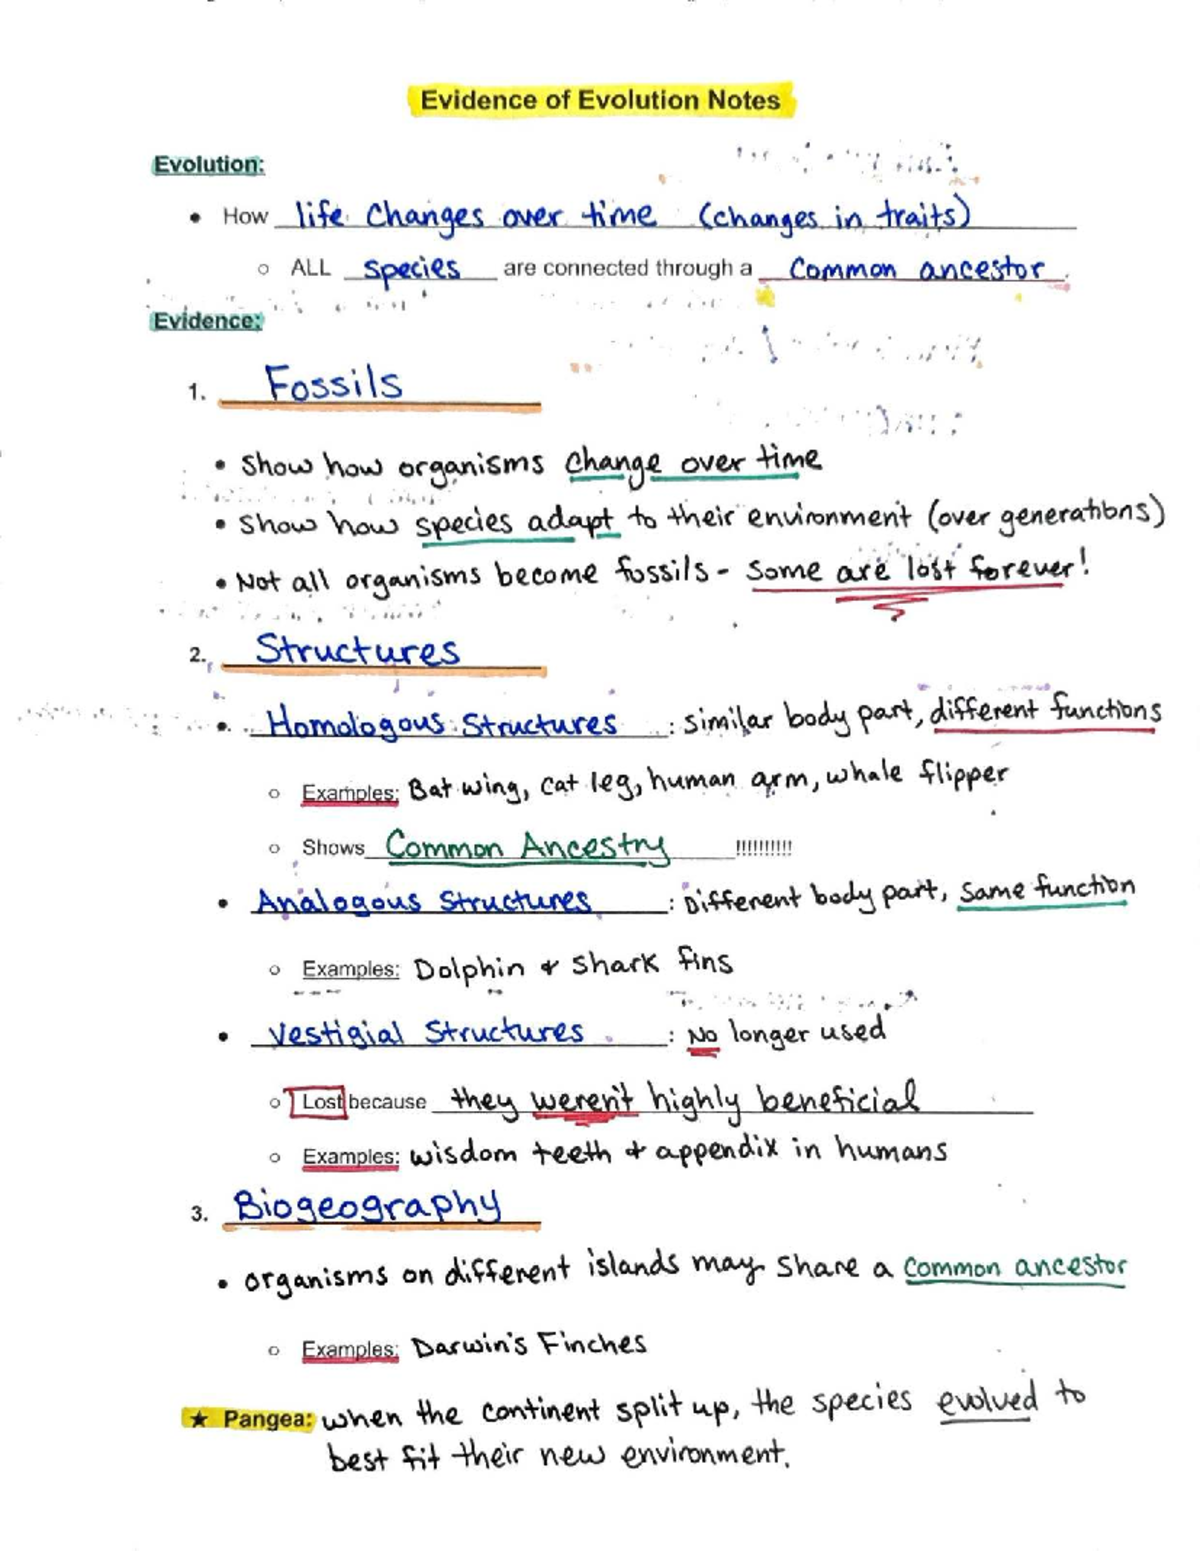 Evidence of Evolution Notes
Evolution:
• How life changes over time (changes in traits)
○ ALL species are connected through a common ancestor.
Evidence:
1. Fossils
• Show how organisms change over time
• Show how species adapt to their environment (over generations)
• Not all organisms become fossils - some are lost forever!
2. Structures
• Homologous Structures : similar body part, different functions
○ Examples: Bat wing, cat leg, human arm, whale flipper
○ Shows Common Ancestry !!!!!!!!!!
• Analogous Structures : Different body part, same function
○ Examples: Dolphin & shark fins
• Vestigial Structures : No longer used
○ Lost because they weren't highly beneficial
○ Examples: wisdom teeth & appendix in humans
3. Biogeography
• organisms on different islands may share a common ancestor
○ Examples: Darwin's Finches
★ Pangea: when the continent split up, the species evolved to
best fit their new environment.